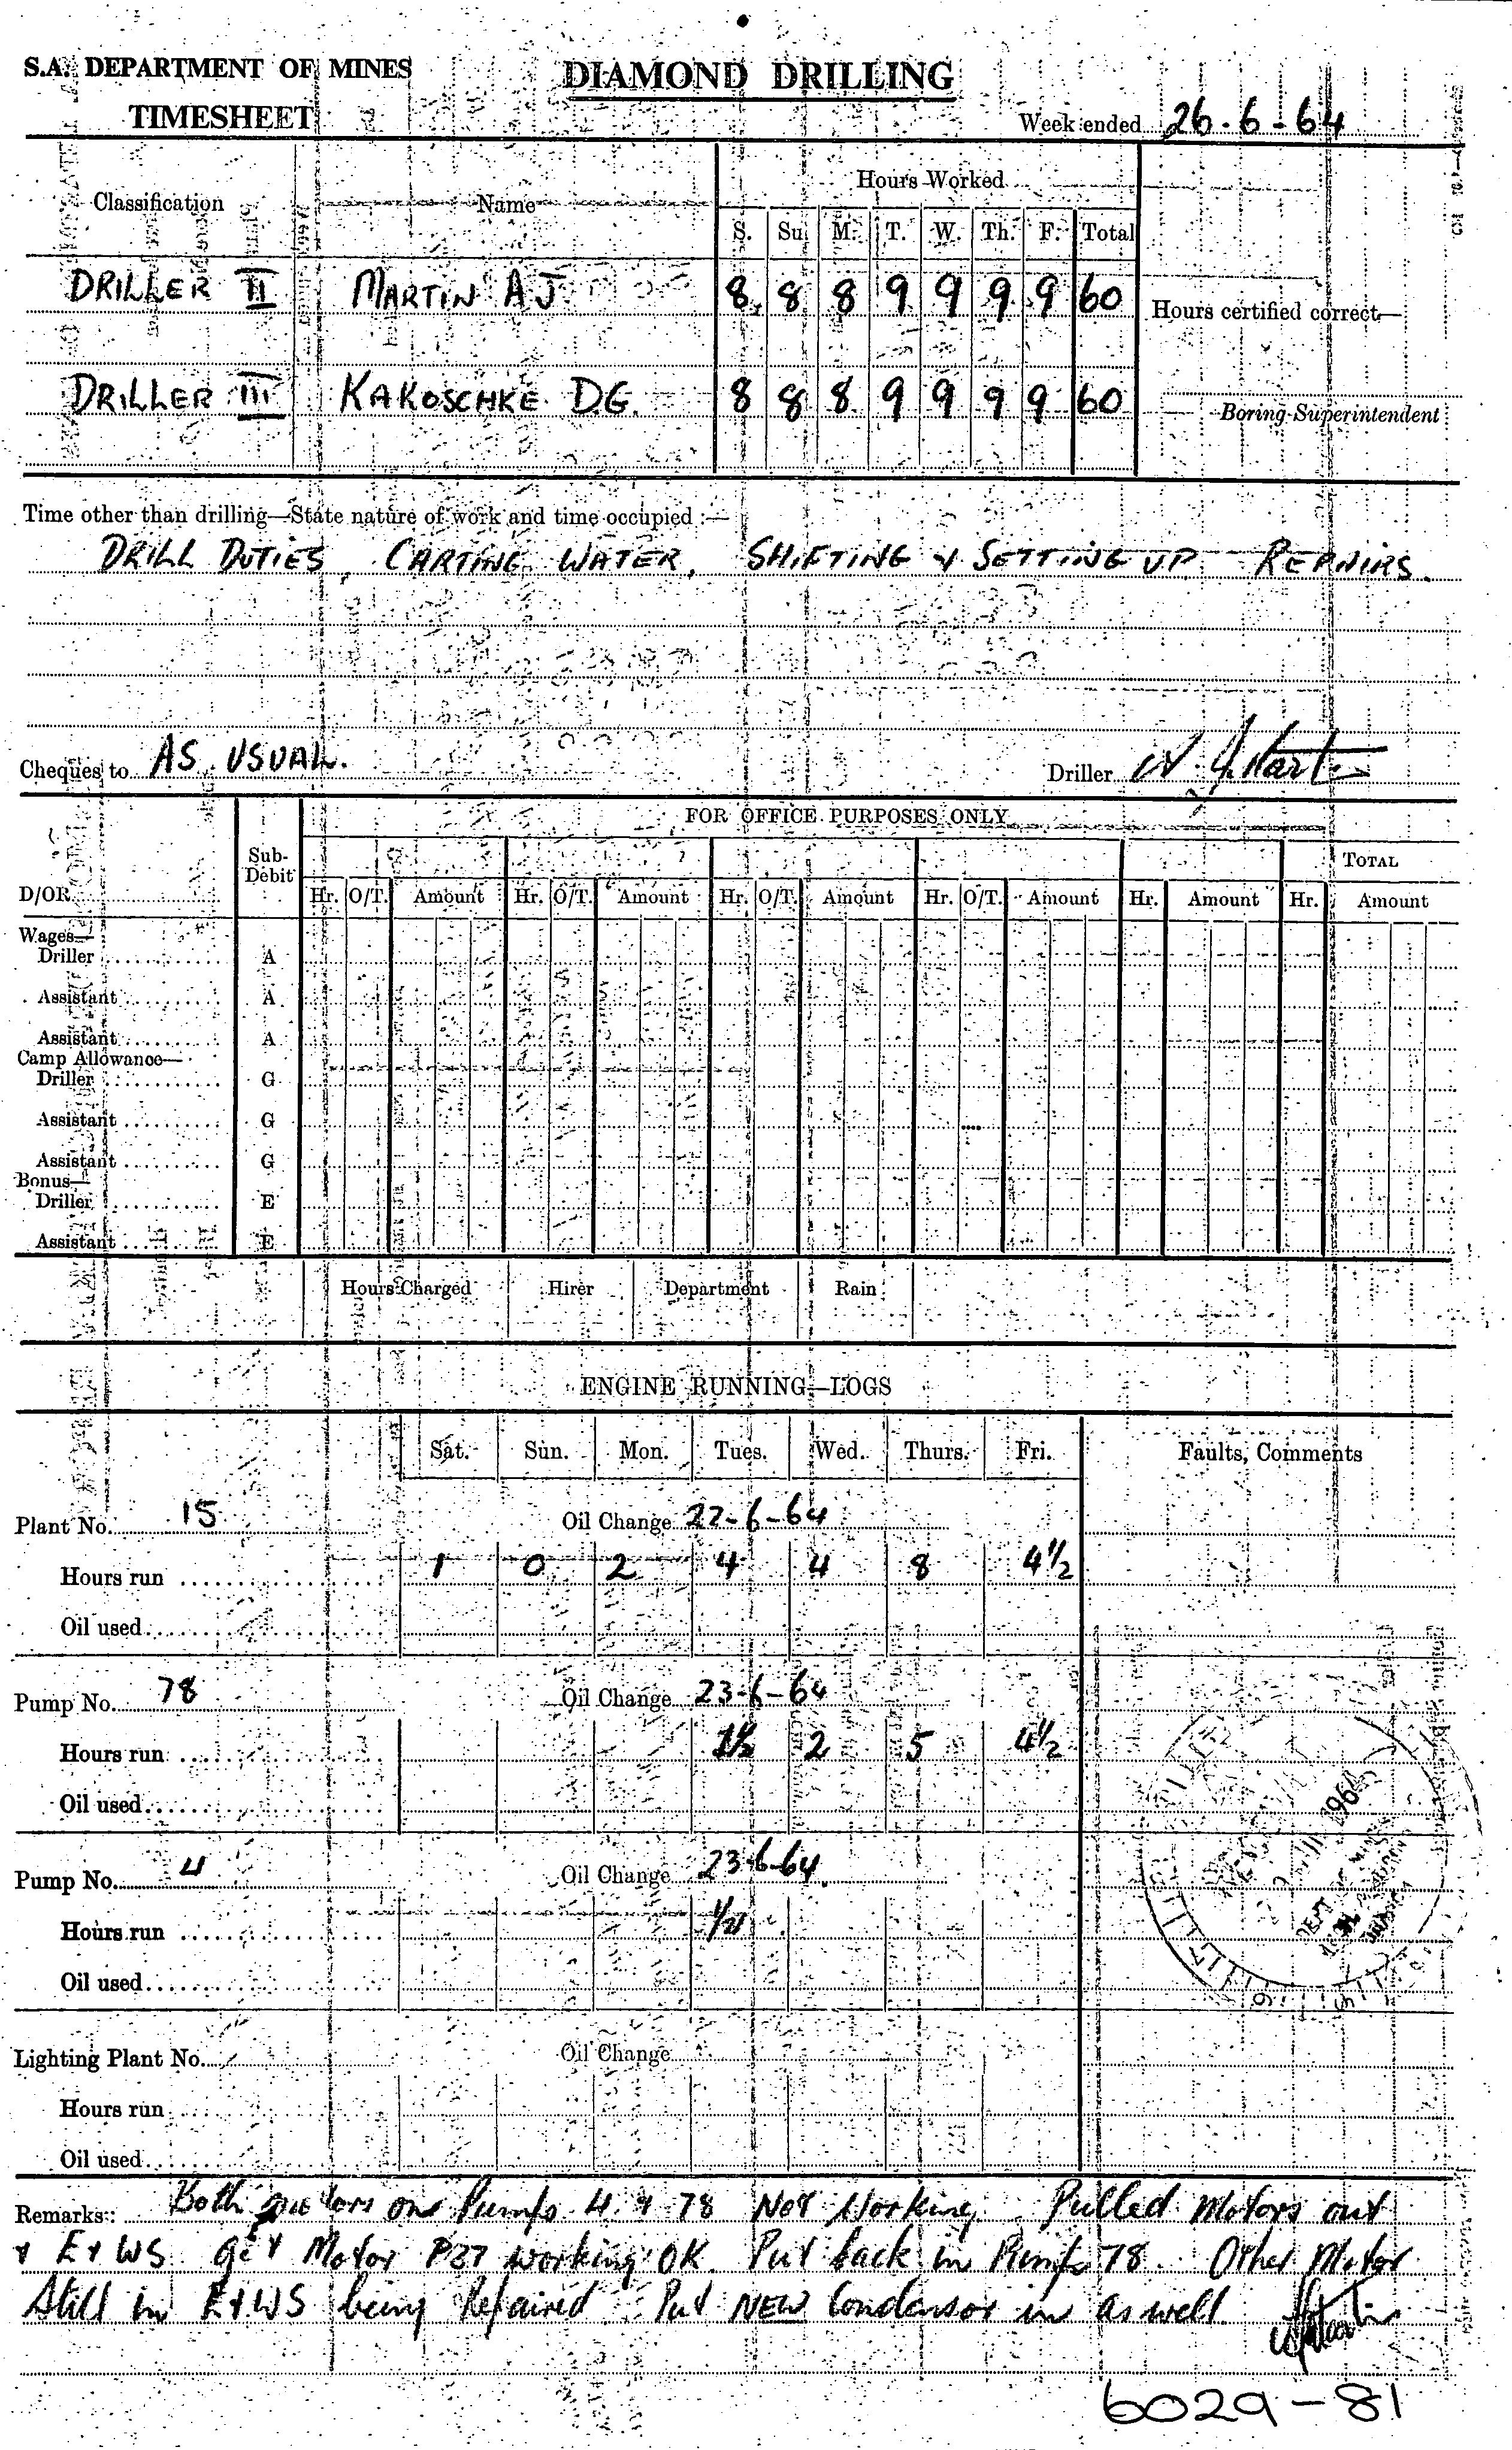 S.A. DEPARTMENT OF MINES
DIAMOND DRILLING
TIMESHEET
Week ended 26-6-64
Classification Name Hours Worked
S. Su. M. T. W. Th. F. Total
DRILLER II MARTIN A J 8 8 8 9 9 9 9 60
Hours certified correct—
DRILLER III KAKOSCHKE D.G. 8 8 8 9 9 9 9 60
Boring Superintendent
Time other than drilling—State nature of work and time occupied :—
DRILL DUTIES, CARTING WATER, SHIFTING & SETTING UP REPAIRS.
Cheques to AS USUAL.
Driller
FOR OFFICE PURPOSES ONLY
Sub-Debit TOTAL
D/OR Hr. O/T. Amount Hr. O/T. Amount Hr. O/T. Amount Hr. O/T. Amount Hr. Amount Hr. Amount
Wages—
Driller A
Assistant A
Assistant A
Camp Allowance—
Driller G
Assistant G
Assistant G
Bonus—
Driller E
Assistant E
Hours Charged Hirer Department Rain
ENGINE RUNNING—LOGS
Sat. Sun. Mon. Tues. Wed. Thurs. Fri. Faults, Comments
Plant No. 15 Oil Change 22-6-64
Hours run 1 0 2 4 4 8 4½
Oil used
Pump No. 78 Oil Change 23-6-64
Hours run 1½ 2 5 4½
Oil used
Pump No. 4 Oil Change 23-6-64
Hours run ½
Oil used
Lighting Plant No. Oil Change
Hours run
Oil used
Remarks: Both motors on Pumps 4 & 78 Not Working Pulled Motors out
& E & WS get Motor P37 working OK. Put back in Pump 78. Other Motor
Still in E & WS being Repaired Put NEW Condensor in as well
6029-81